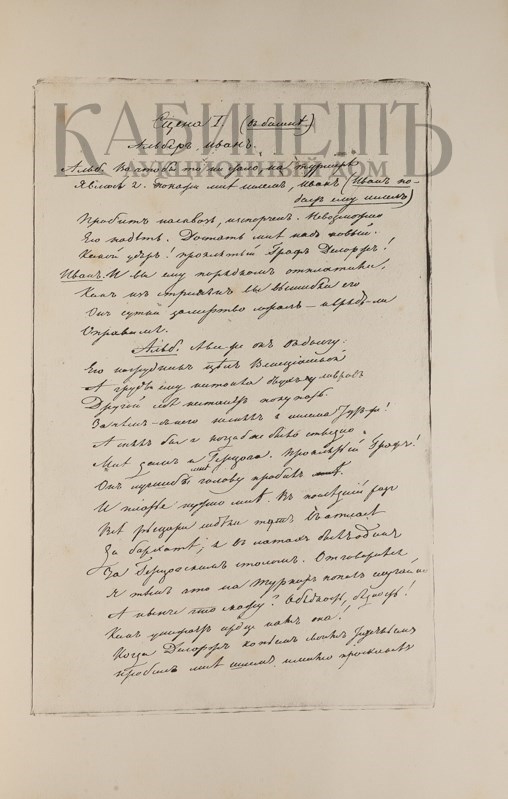 КАБИНЕТЪ
АУКЦИОННЫЙ ДОМ
Сцена I. (въ башнѣ.)
Альберъ. Иванъ.
Альб. Во что бы то ни стало, на турнирѣ
Явлюсь я. покажи мнѣ шлемъ, Иванъ (Иванъ по-
даетъ ему шлемъ)
Пробитъ насквозь, испорченъ. Невозможно
Его надѣть. Достать мнѣ надо новый.
Какой ударъ! проклятый Графъ Делоржъ!
Иванъ. И вы ему порядкомъ отплатили,
Какъ изъ стремянъ вы вышибли его
Онъ сутки замертво лежалъ — и врядъ-ли
Оправился.
Альб. А все же онъ въ
Его нагрудникъ цѣлъ Венеціанской
А грудь ему
Другой себѣ не станетъ покупать.
Зачѣмъ съ него не снялъ я шлема
А снялъ бы я когда бъ не было стыдно
Мнѣ дамъ и Герцога. Проклятый Графъ!
Онъ лучше бы мнѣ голову пробилъ.
И платье нужно мнѣ. Въ послѣдній разъ
Всѣ рыцари сидѣли тутъ въ атласѣ
Да бархатѣ; я въ латахъ былъ одинъ
За Герцогскимъ столомъ. Отговорился
Я тѣмъ что на турниръ попалъ случайно
А нынче что скажу? О бѣдность, бѣдность!
Какъ унижаетъ сердце намъ она!
Когда Делоржъ копьемъ своимъ тяжелымъ
Пробилъ мнѣ шлемъ и мимо проскакалъ